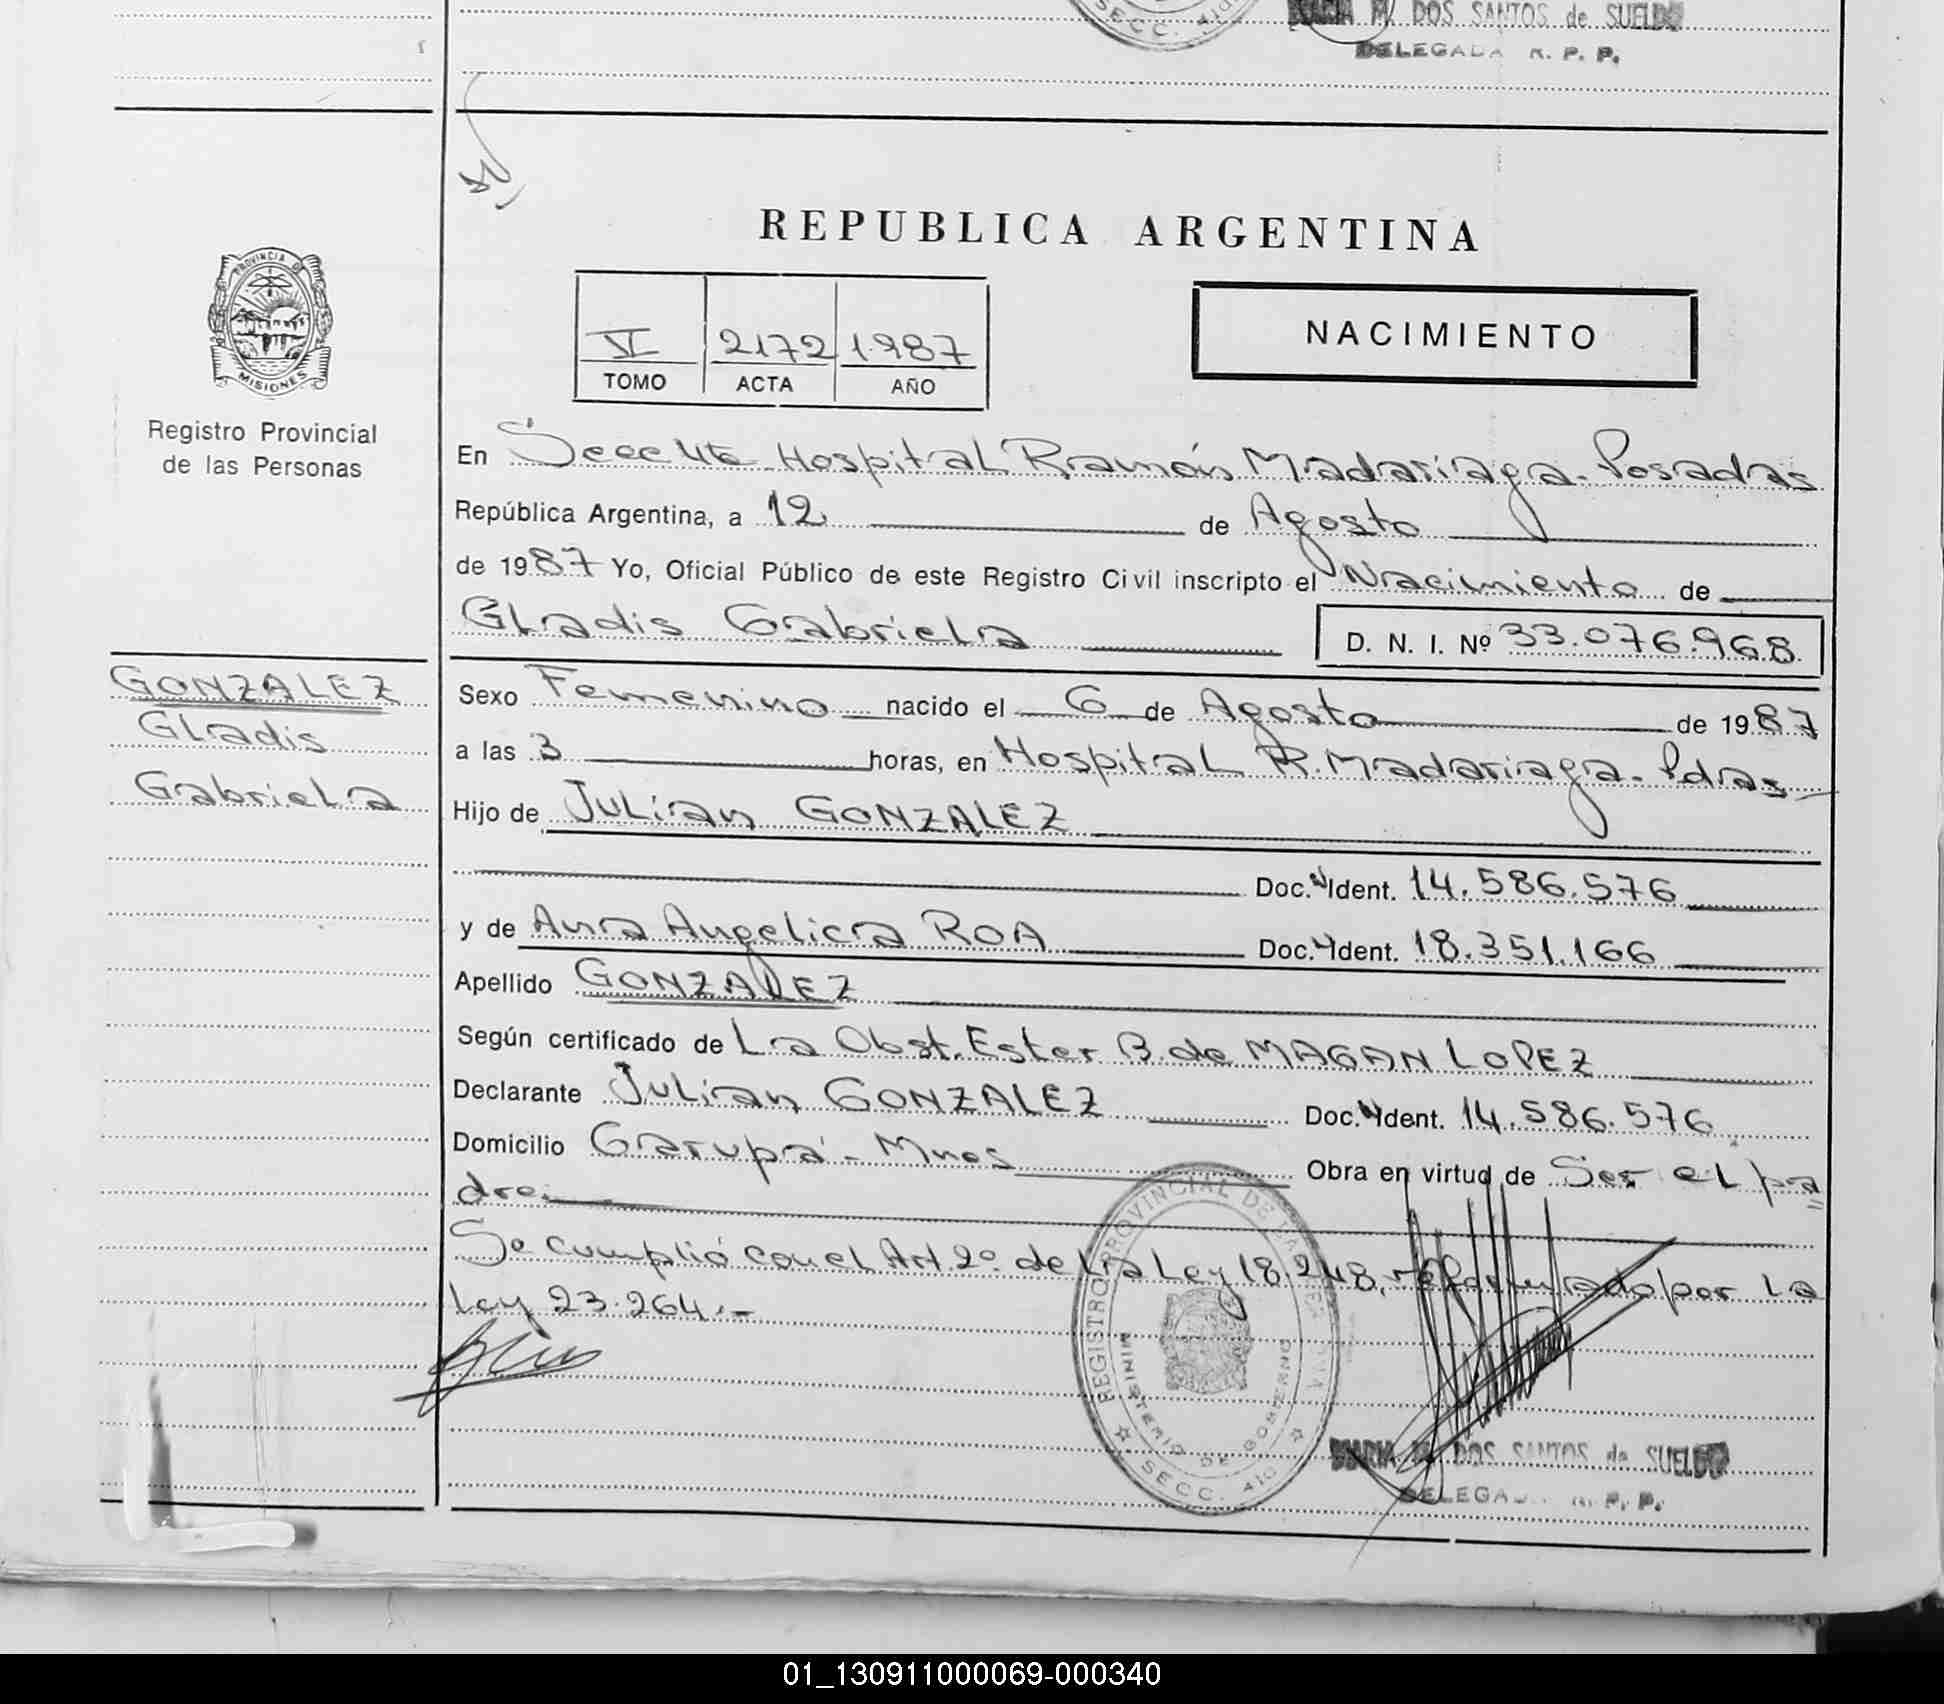 SECC. 410
MARIA M. DOS SANTOS de SUELDO
DELEGADA R. P. P.
REPUBLICA ARGENTINA
PROVINCIA DE
MISIONES
Registro Provincial
de las Personas
VI 2172 1987
TOMO ACTA AÑO
NACIMIENTO
En Secc 4ta Hospital Ramón Madariaga - Posadas
República Argentina, a 12 de Agosto
de 1987 Yo, Oficial Público de este Registro Civil inscripto el Nacimiento de
Gladis Gabriela D. N. I. Nº 33.076.968
GONZALEZ
Gladis
Gabriela
Sexo Femenino nacido el 6 de Agosto de 1987
a las 3 horas, en Hospital R. Madariaga - Pdas -
Hijo de Julian GONZALEZ
Doc. Ident. 14.586.576
y de Ana Angelica ROA Doc. Ident. 18.351.166
Apellido GONZALEZ
Según certificado de La Obst. Ester B. de MAGAN LOPEZ
Declarante Julian GONZALEZ Doc. Ident. 14.586.576
Domicilio Garupá - Mnes Obra en virtud de Ser el pa
dre.
Se cumplió con el Art 2º de La Ley 18.248, reformado por La
Ley 23.264.-
REGISTRO PROVINCIAL DE LAS PERSONAS
MINISTERIO DE GOBIERNO
SECC. 410
MARIA M. DOS SANTOS de SUELDO
DELEGADA R. P. P.
01_130911000069-000340